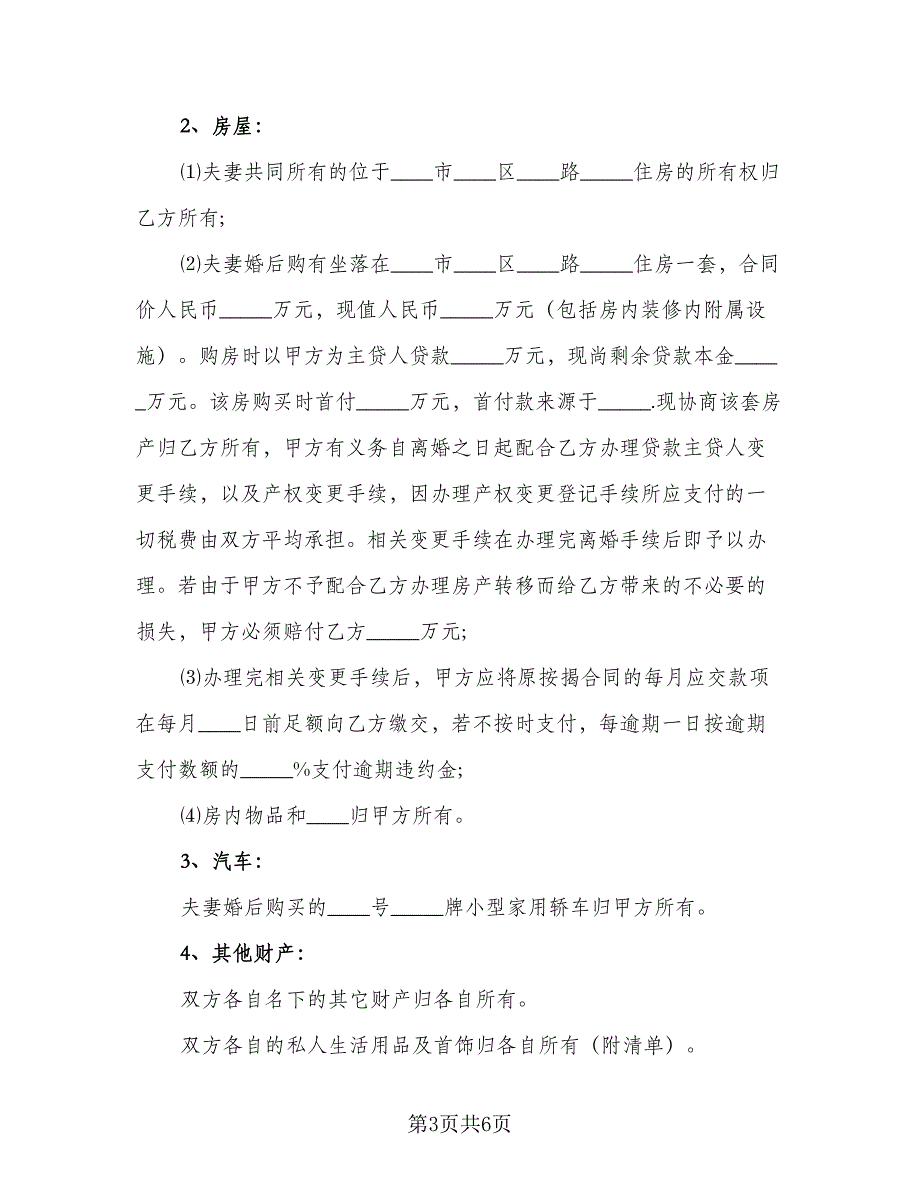 2、房屋：
⑴夫妻共同所有的位于____市____区____路_____住房的所有权归
乙方所有;
⑵夫妻婚后购有坐落在____市____区____路_____住房一套，合同
价人民币_____万元，现值人民币_____万元（包括房内装修内附属设
施）。购房时以甲方为主贷人贷款_____万元，现尚剩余贷款本金____
_万元。该房购买时首付_____万元，首付款来源于_____.现协商该套房
产归乙方所有，甲方有义务自离婚之日起配合乙方办理贷款主贷人变
更手续，以及产权变更手续，因办理产权变更登记手续所应支付的一
切税费由双方平均承担。相关变更手续在办理完离婚手续后即予以办
理。若由于甲方不予配合乙方办理房产转移而给乙方带来的不必要的
损失，甲方必须赔付乙方_____万元;
⑶办理完相关变更手续后，甲方应将原按揭合同的每月应交款项
在每月____日前足额向乙方缴交，若不按时支付，每逾期一日按逾期
支付数额的_____%支付逾期违约金;
⑷房内物品和____归甲方所有。
3、汽车：
夫妻婚后购买的____号_____牌小型家用轿车归甲方所有。
4、其他财产：
双方各自名下的其它财产归各自所有。
双方各自的私人生活用品及首饰归各自所有（附清单）。
第3页共6页